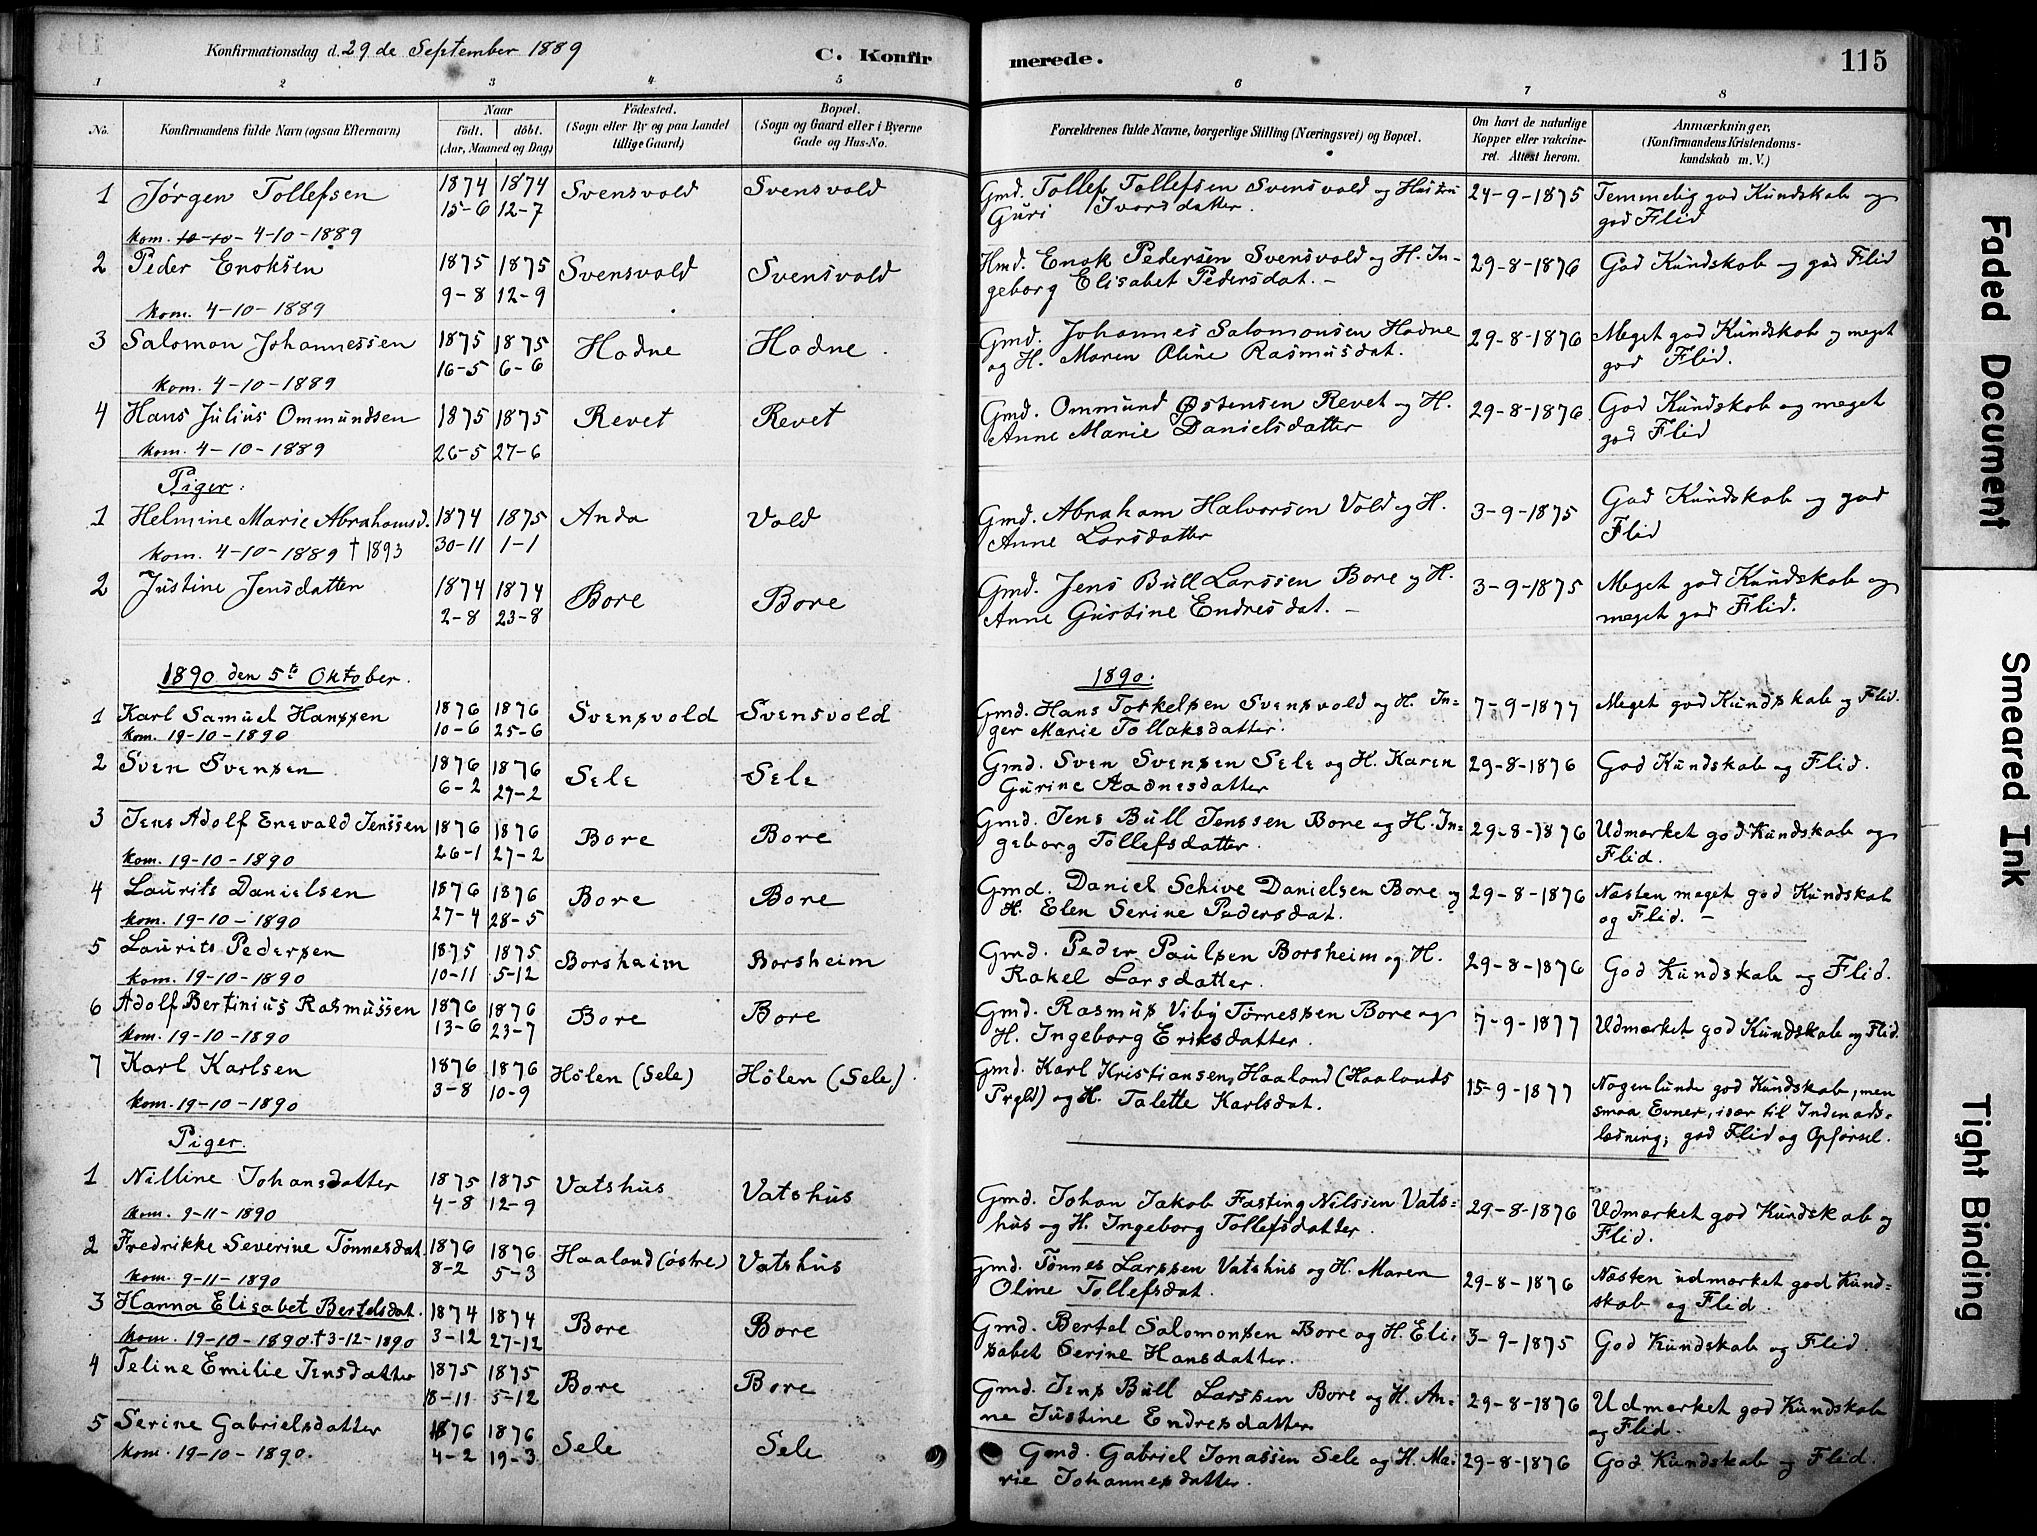 Konfirmationsdag d. 29 de September 1889 C. Konfirmerede. 115
1 2 3 4 5 6 7 8
No. Konfirmandens fulde Navn (ogsaa Efternavn) Naar født. døbt. (Aar, Maaned og Dag) Fødested. (Sogn eller By og paa Landet tillige Gaard) Bopæl. (Sogn og Gaard eller i Byerne Gade og Hus-No. Forældrenes fulde Navne, borgerlige Stilling (Næringsvei) og Bopæl. Om havt de naturlige Kopper eller vakcineret. Attest herom. Anmærkninger, (Konfirmandens Kristendomskundskab m. V.)
1 Jørgen Tollefsen 1874 1874 Svensvold Svensvold Gmd. Tollef Tollefsen Svensvold og Hustru 24-9-1875 Temmelig god Kundskab og
15-6 12-7 Guri Ivarsdatter. god Flid
kom. 10-10- 4-10-1889
2 Peder Enoksen 1875 1875 Svensvold Svensvold Hmd. Enok Pedersen Svensvold og H. In- 29-8-1876 God Kundskab og god Flid
kom. 4-10-1889 9-8 12-9 geborg Elisabet Pedersdat. -
3 Salomon Johannessen 1875 1875 Hodne Hodne. Gmd. Johannes Salomonsen Hodne 29-8-1876 Meget god Kundskab og meget
kom. 4-10-1889 16-5 6-6 og H. Maren Oline Rasmusdat. god Flid.
4 Hans Julius Ommundsen 1875 1875 Revet Revet Gmd. Ommund Østensen Revet og H. 29-8-1876 God Kundskab og meget
kom. 4-10-1889 26-5 27-6 Anne Marie Danielsdatter god Flid
Piger:
1 Helmine Marie Abrahamsd. 1874 1875 Anda Vold Gmd. Abraham Halvorsen Vold og H. 3-9-1875 God Kundskab og god
kom. 4-10-1889 † 1893 30-11 1-1 Anne Larsdatter Flid
2 Justine Jensdatter 1874 1874 Bore Bore Gmd. Jens Bull Larssen Bore og H. 3-9-1875 Meget god Kundskab og
2-8 23-8 Anne Gustine Endresdat. - meget god Flid.
1890 den 5te Oktober. 1890.
1 Karl Samuel Hanssen 1876 1876 Svensvold Svensvold Gmd. Hans Torkelsen Svensvold og H. In- 7-9-1877 Meget god Kundskab og Flid.
kom. 19-10-1890 10-6 25-6 ger Marie Tollaksdatter.
2 Sven Svensen 1876 1876 Sele Sele Gmd. Sven Svensen Sele og H. Karen 29-8-1876 God Kundskab og Flid.
6-2 27-2 Gurine Aadnesdatter
3 Jens Adolf Enevald Jenssen 1876 1876 Bore Bore Gmd. Jens Bull Jenssen Bore og H. In= 29-8-1876 Udmærket god Kundskab og
kom. 19-10-1890 26-1 27-2 geborg Tollefsdatter. Flid.
4 Laurits Danielsen 1876 1876 Bore Bore Gmd. Daniel Schive Danielsen Bore og 29-8-1876 Næsten meget god Kundskab
kom. 19-10-1890 27-4 28-5 H. Elen Serine Pedersdat. og Flid. -
5 Laurits Pedersen 1875 1875 Borsheim Borsheim Gmd. Peder Paulsen Borsheim og H. 29-8-1876 God Kundskab og Flid.
kom. 19-10-1890 10-11 5-12 Rakel Larsdatter.
6 Adolf Bertinius Rasmussen 1876 1876 Bore Bore Gmd. Rasmus Viby Tørressen Bore og 7-9-1877 Udmærket god Kundskab og Flid.
kom. 19-10-1890 13-6 23-7 H. Ingeborg Eriksdatter.
7 Karl Karlsen 1876 1876 Hølen (Sele) Hølen (Sele). Gmd. Karl Kristiansen, Haaland (Haalands 15-9-1877 Nogenlunde god Kundskab, men
kom. 19-10-1890 3-8 10-9 Prgld) og H. Talette Karlsdat. smaa Evner, især til Indenads=
læsning; god Flid og Opførsel.
Piger.
1 Nilline Johansdatter 1875 1875 Vatshus Vatshus Gmd. Johan Jakob Fasting Nilssen Vats= 29-8-1876 Udmærket god Kundskab og
kom. 9-11-1890 4-8 12-9 hus og H. Ingeborg Tollefsdatter. Flid.
2 Fredrikke Severine Tønnesdat. 1876 1876 Haaland (østre) Vatshus Gmd. Tønnes Larssen Vatshus og H. Maren 29-8-1876 Næsten udmærket god Kund=
kom. 9-11-1890 8-2 5-3 Oline Tollefsdat. skab og Flid.
3 Hanna Elisabet Bertelsdat. 1874 1874 Bore Bore Gmd. Bertel Salomonsen Bore og H. Eli= 3-9-1875 God Kundskab og Flid.
kom. 19-10-1890. † 3-12-1890 3-12 27-12 sabet Serine Hansdatter.
4 Teline Emilie Jensdatter 1875 1875 Bore Bore Gmd. Jens Bull Larssen Bore og H. An= 29-8-1876 Udmærket god Kundskab
8-11 5-12 ne Justine Endresdatter og Flid.
5 Serine Gabrielsdatter 1876 1876 Sele Sele Gmd. Gabriel Jonassen Sele og H. Ma= 29-8-1876 God Kundskab og Flid.
kom. 19-10-1890. 4-2 19-3 rie Johannesdatter.
Faded Document
Smeared Ink
Tight Binding